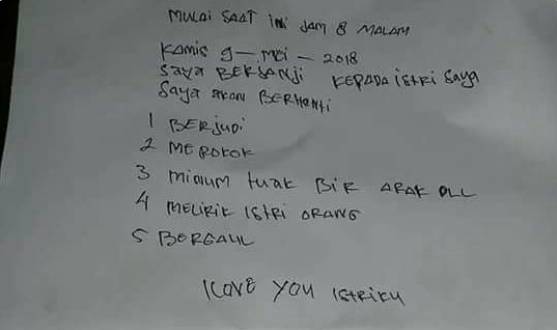 MULAI SAAT INI JAM 8 MALAM
KAMIS 9 - MEI - 2018
SAYA BERJANJI KEPADA ISTRI SAYA
SAYA AKAN BERHENTI
1 BERJUDI
2 MEROKOK
3 MINUM TUAK BIR ARAK DLL
4 MELIRIK ISTRI ORANG
5 BERGAUL
I LOVE YOU ISTRIKU